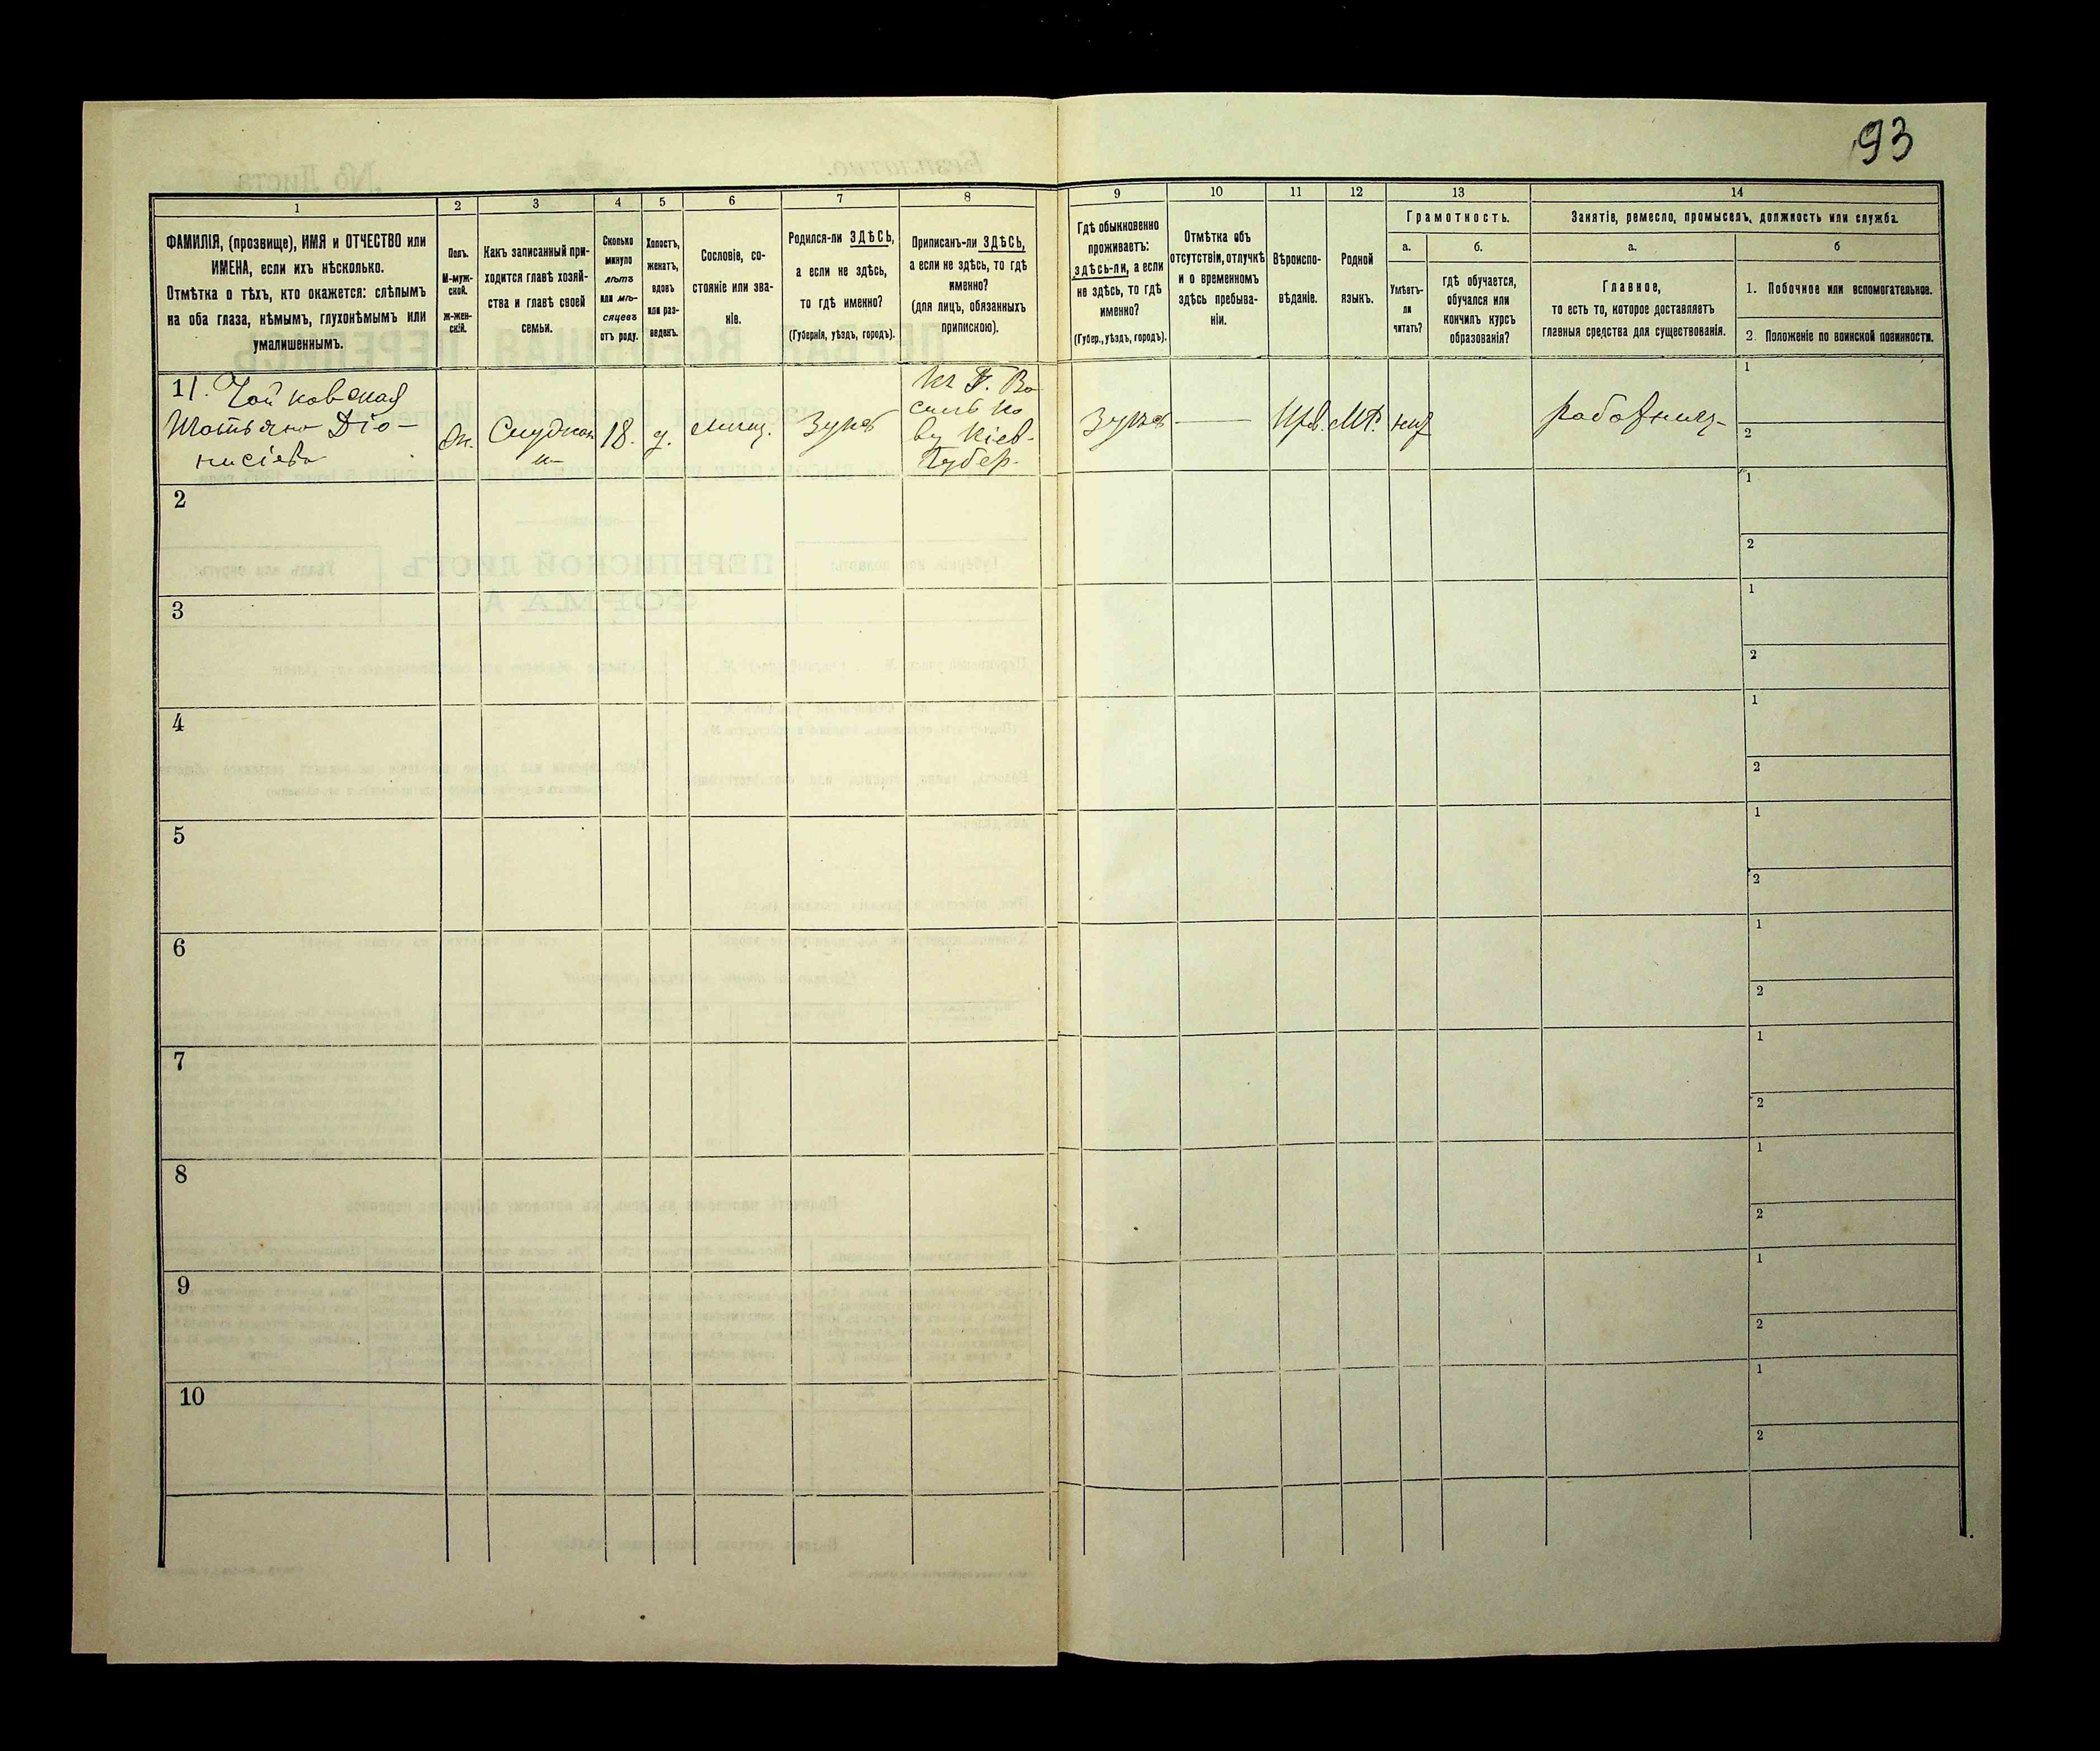 193
1
2
3
4
5
6
7
8
9
10
11
12
13
14
ФАМИЛІЯ, (прозвище), ИМЯ и ОТЧЕСТВО или
ИМЕНА, если ихъ нѣсколько.
Отмѣтка о тѣхъ, кто окажется: слѣпымъ
на оба глаза, нѣмымъ, глухонѣмымъ или
умалишеннымъ.
Полъ.
М-муж-
ской.
Ж-жен-
скій.
Какъ записанный при-
ходится главѣ хозяй-
ства и главѣ своей
семьи.
Сколько
минуло
лѣтъ
или мѣ-
сяцевъ
отъ роду.
Холостъ,
женатъ,
вдовъ
или раз-
веденъ.
Сословіе, со-
стояніе или зва-
ніе.
Родился-ли ЗДѢСЬ,
а если не здѣсь,
то гдѣ именно?
(Губернія, уѣздъ, городъ).
Приписанъ-ли ЗДѢСЬ,
а если не здѣсь, то гдѣ
именно?
(для лицъ, обязанныхъ
припискою).
Гдѣ обыкновенно
проживаетъ:
ЗДѢСЬ-ли, а если
не здѣсь, то гдѣ
именно?
(Губер., уѣздъ, городъ).
Отмѣтка объ
отсутствіи, отлучкѣ
и о временномъ
здѣсь пребыва-
ніи.
Вѣроиспо-
вѣданіе.
Родной
языкъ.
Грамотность.
а.
Умѣетъ-
ли
читать?
б.
гдѣ обучается,
обучался или
кончилъ курсъ
образованія?
Занятіе, ремесло, промыселъ, должность или служба.
а.
Главное,
то есть то, которое доставляетъ
главныя средства для существованія.
б
1. Побочное или вспомогательное.
2. Положеніе по воинской повинности.
11. Чойковская
Татьяна Діо-
нисіева
Ж.
18.
д.
мѣщ.
къ Г. Ва
силькову
Кіев.
Губер.
Прв.
МР.
работниц
1
2
2
1
2
3
1
2
4
1
2
5
1
2
6
1
2
7
1
2
8
1
2
9
1
2
10
1
2